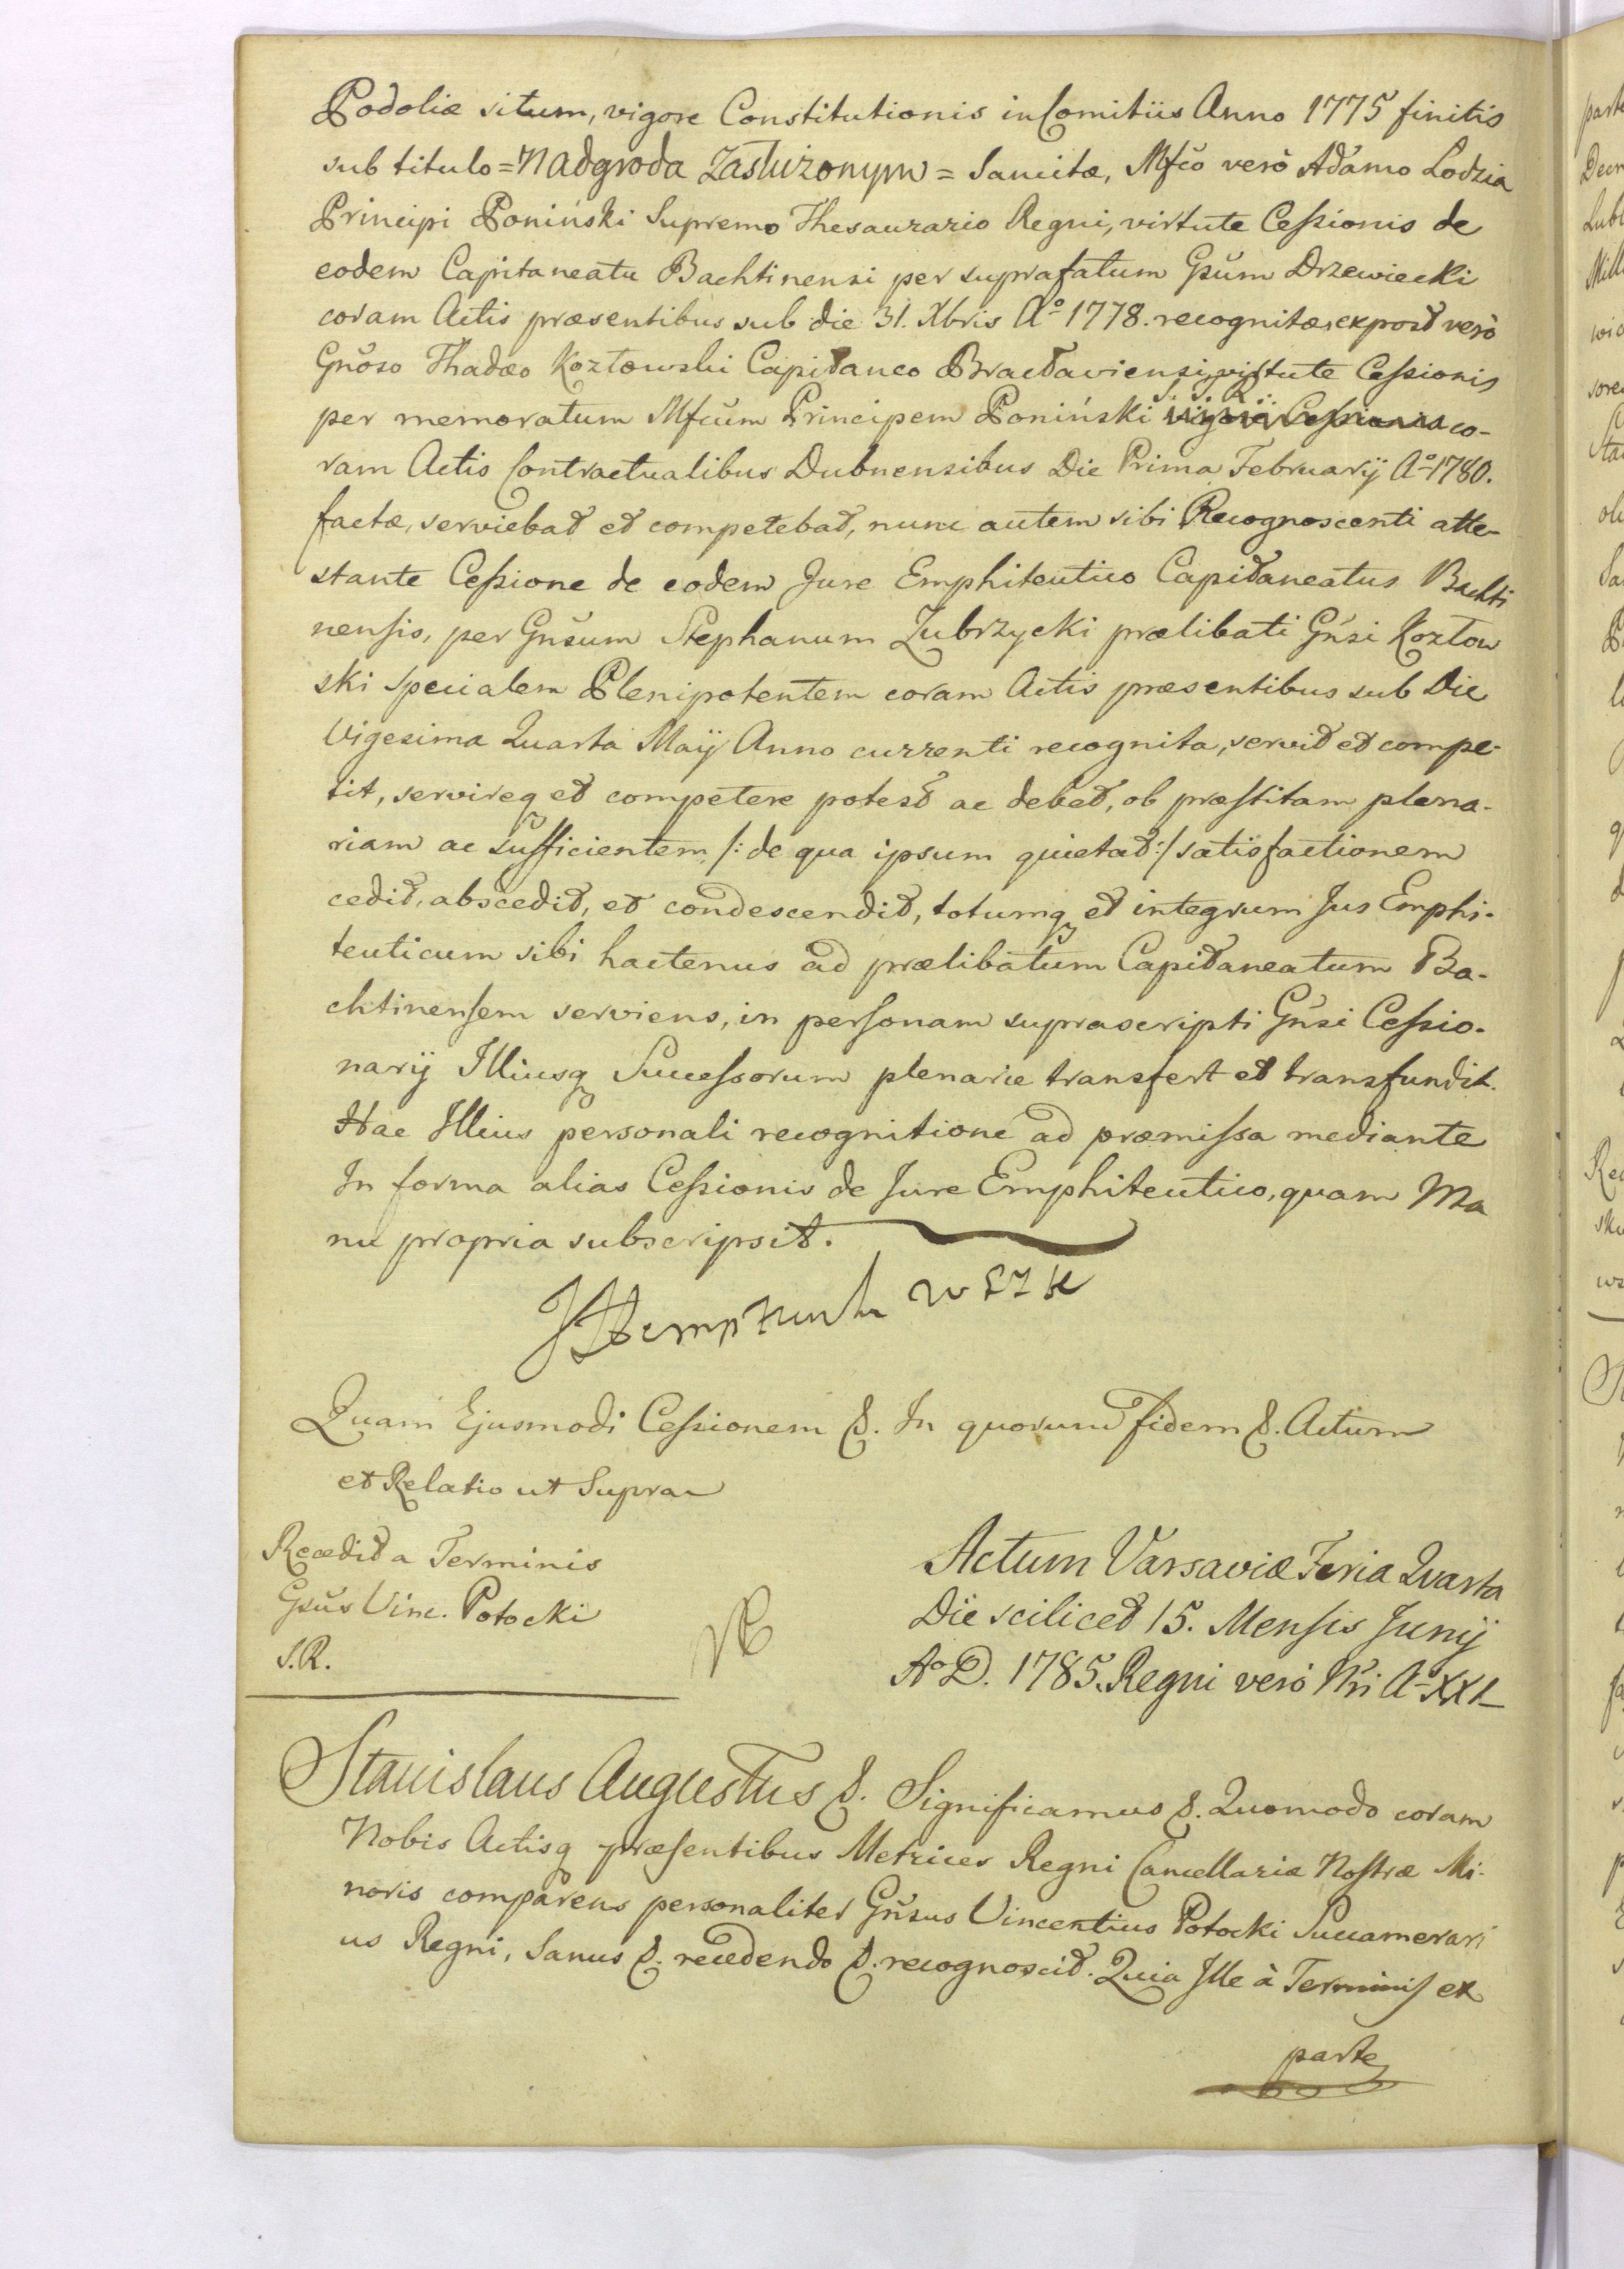 Podoliæ situm, vigore Constitutionis in Comitiis Anno 1775 finitis
sub titulo = Nadgroda Zasłużonym = Sancitæ, Mfco verò Adamo Lodzia
Principi Poniński Supremo Thesaurario Regni, virtute Cessionis de
eodem Capitaneatu Bachtinensi per suprafatum Gsum Drzewiecki
coram Actis præsentibus sub die 31. Xbris Aº 1778. recognitæ, expost verò
Gnoso Thadæo Kozłowski Capitaneo Bracłaviensi, virtute Cessionis
per memoratum Mfcum Principem Poniński vigore Cessionis co-
ram Actis Contractualibus Dubnensibus Die Prima Februarij Aº 1780.
factæ, serviebat et competebat, nunc autem sibi Recognoscenti atte-
stante Cessione de eodem Jure Emphiteutico Capitaneatus Bachti
nensis, per Gnsum Stephanum Zubrzycki prælibati Gnsi Kozłow
ski Specialem Plenipotentem coram Actis præsentibus sub Die
Vigesima Quarta Maij Anno currenti recognita, servit et compe-
tit, servireq et competere potest ac debet, ob præstitam plena-
riam ac sufficientem /: de qua ipsum quietat :/ satisfactionem
cedit, abscedit, et condescendit, totumq et integrum Jus Emphi-
teuticum sibi hactenus ad prælibatum Capitaneatum Ba-
chtinensem serviens, in personam suprascripti Gnsi Cessio-
narij Illiusq Successorum plenarie transfert et transfundit.
Hac Illius personali recognitione ad præmissa mediante
In forma alias Cessionis de Jure Emphiteutico, quam Ma
nu propria subscripsit.
Quam Ejusmodi Cessionem &. In quorum fidem &. Actum
et Relatio ut Supra
Recedit a Terminis
Gsus Vinc. Potocki
S.R.
Actum Varsaviæ Feria Quarta
Die scilicet 15. Mensis Junij
Aº D. 1785. Regni verò Nri Aº XXI
Stanislaus Augustus &. Significamus &. Quomodo coram
Nobis Actisq præsentibus Metrices Regni Cancellariæ Nostræ Mi-
noris comparens personaliter Gnsus Vincentius Potocki Succamerari
us Regni, Sanus &. recedendo &. recognoscit. Quia Ille à Terminis ex
parte